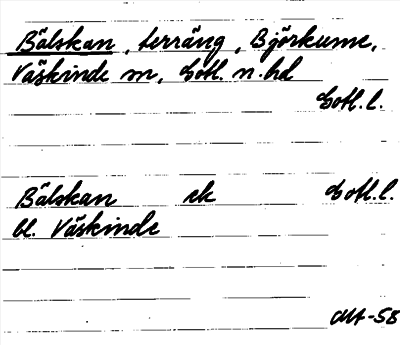 Bälskan, terräng, Björkume,
Väskinde sn, Gotl. n. hd
Gotl. l.
Bälskan ek Gotl. l.
bl. Väskinde